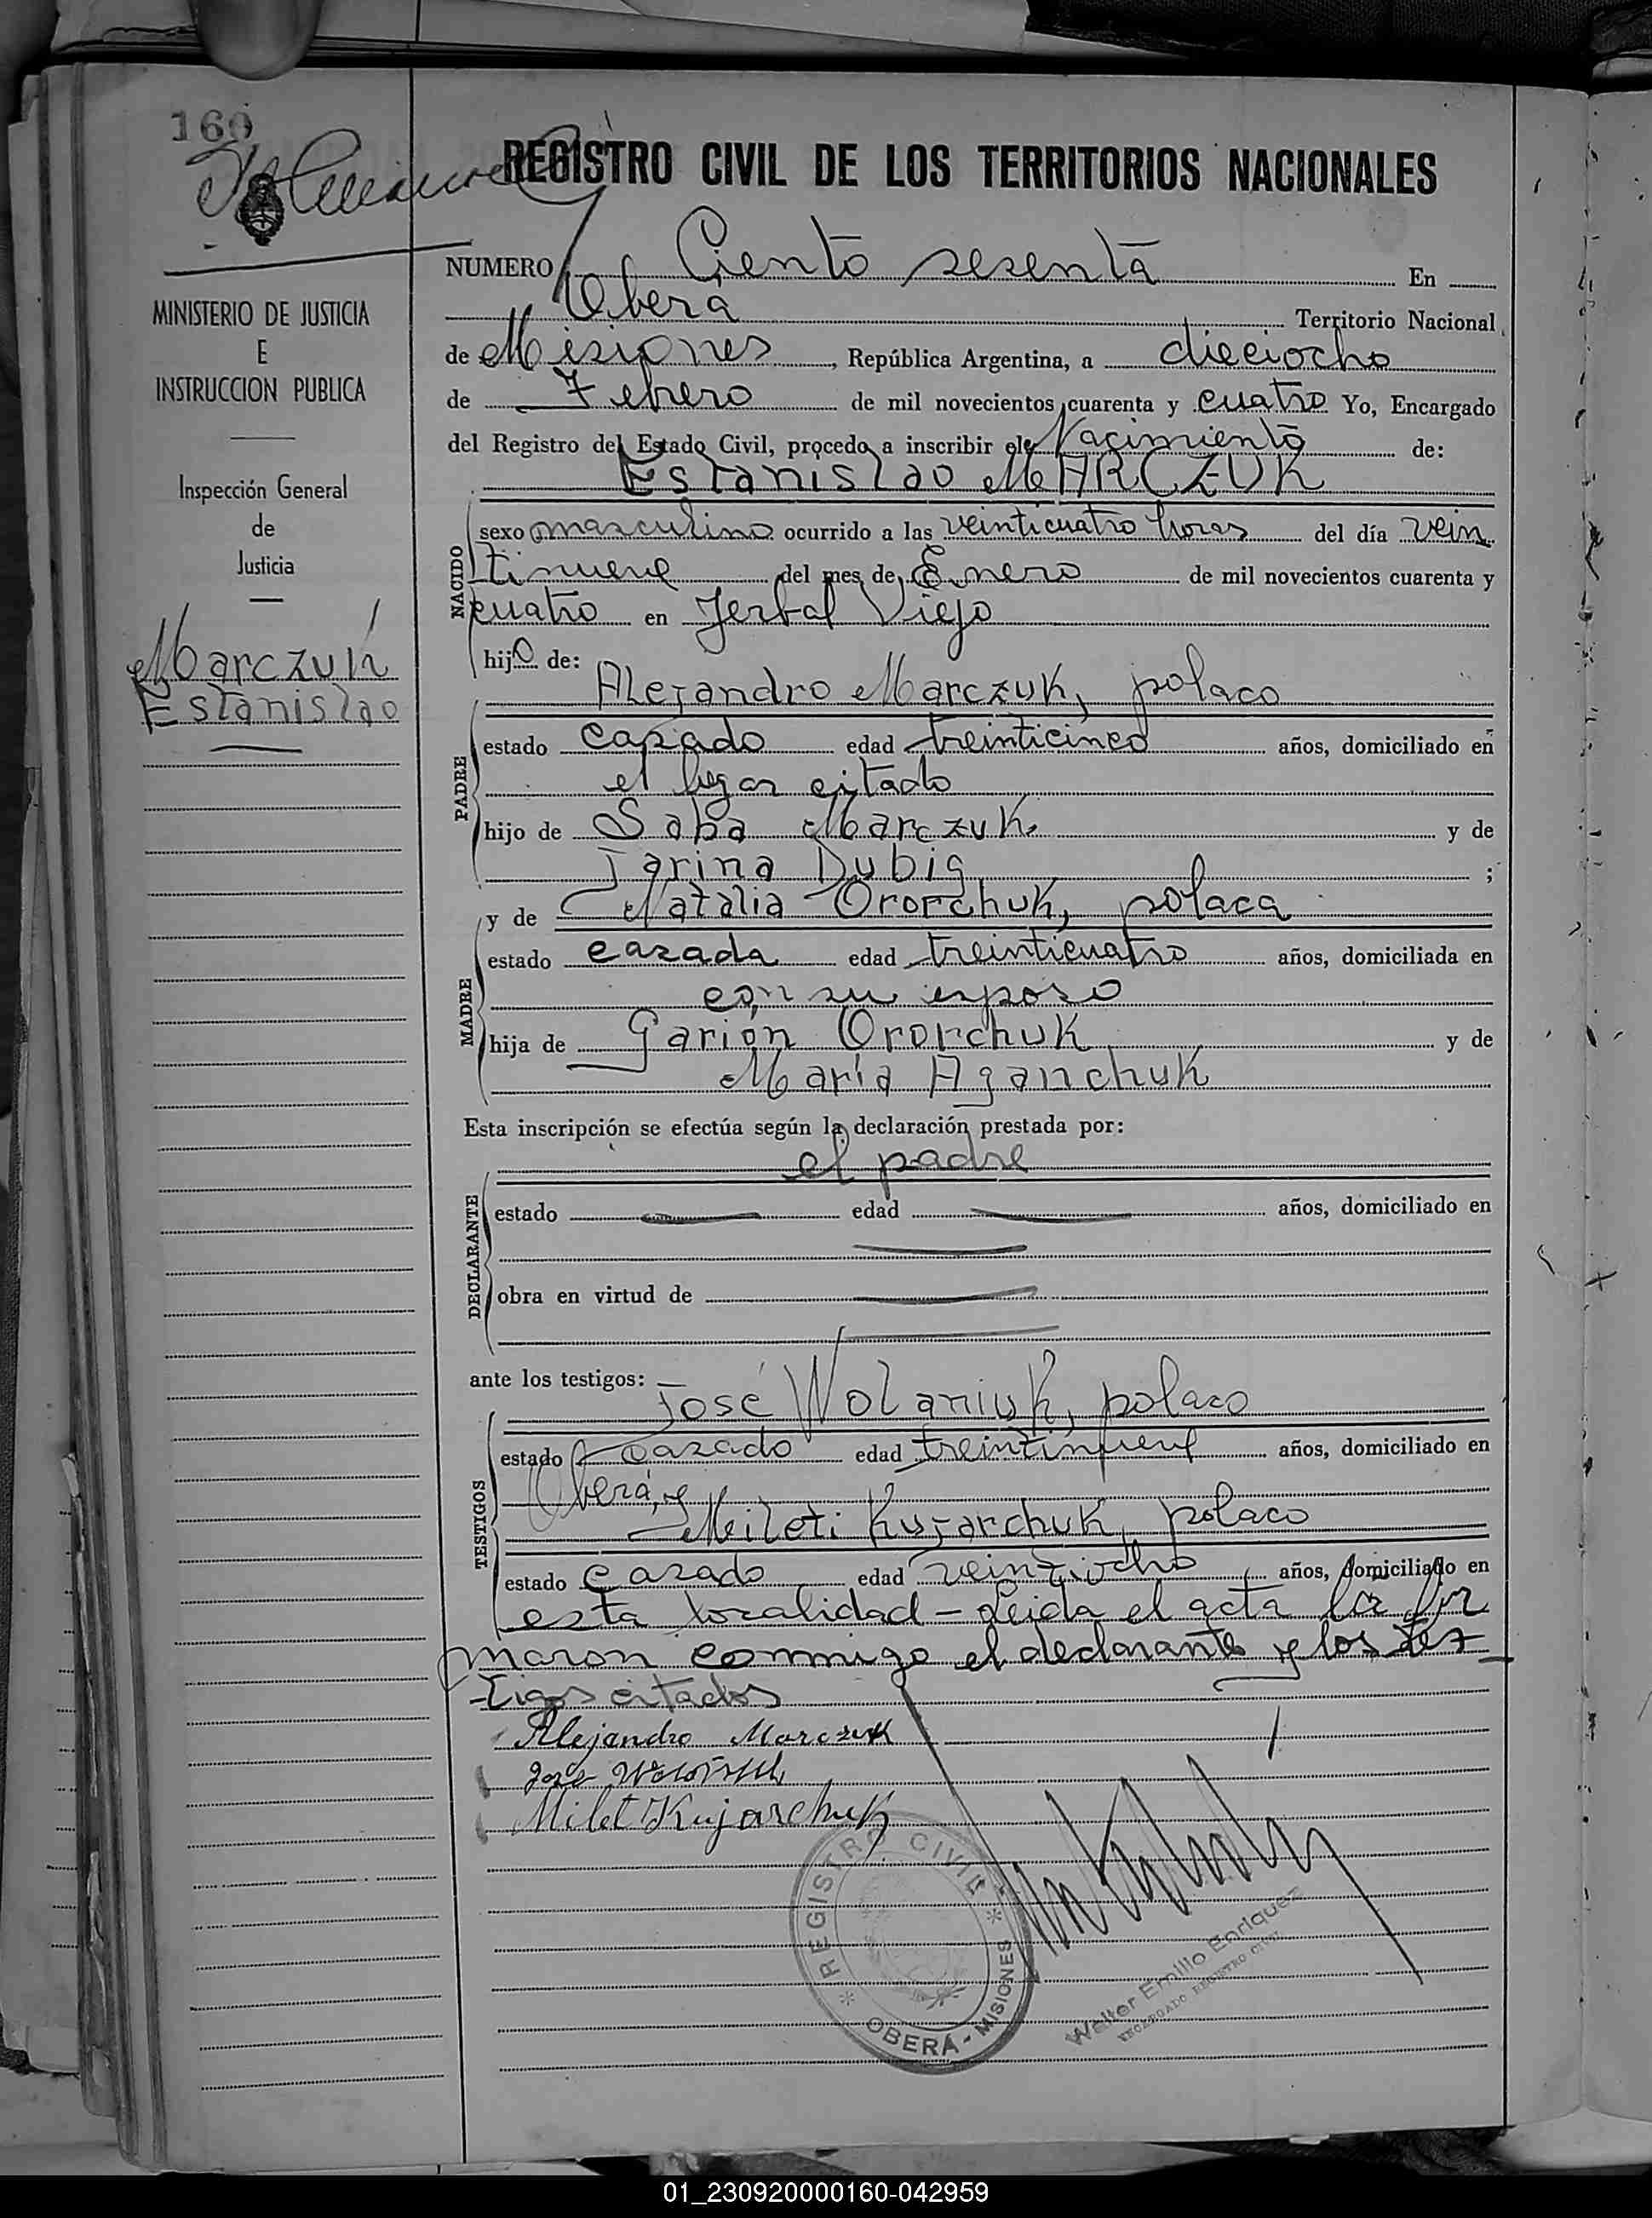 160
REGISTRO CIVIL DE LOS TERRITORIOS NACIONALES
NUMERO Ciento sesenta En
Oberá Territorio Nacional
de Misiones, República Argentina, a dieciocho
de Febrero de mil novecientos cuarenta y cuatro Yo, Encargado
del Registro del Estado Civil, procedo a inscribir el Nacimiento de:
Estanislao MARCZUK
NACIDO
sexo masculino ocurrido a las veinticuatro horas del día vein
tinueve del mes de Enero de mil novecientos cuarenta y
cuatro en Jerbal Viejo
hijo de:
PADRE
Alejandro Marczuk, polaco
estado casado edad treinticinco años, domiciliado en
el lugar citado
hijo de Saba Marczuk y de
Jarina Dubig ;
MADRE
y de Natalia Ororchuk, polaca
estado casada edad treinticuatro años, domiciliada en
con su esposo
hija de Garión Ororchuk y de
María Aganchuk
Esta inscripción se efectúa según la declaración prestada por:
el padre
DECLARANTE
estado edad años, domiciliado en
obra en virtud de
ante los testigos:
TESTIGOS
José Wolaniuk, polaco
estado casado edad treintinueve años, domiciliado en
Oberá, y
Mileti Kujarchuk, polaco
estado casado edad veintiocho años, domiciliado en
esta localidad - Leida el acta la fir
maron conmigo el declarante y los tes-
tigos citados
Alejandro Marczuk
José
Milet Kujarchuk
REGISTRO CIVIL
OBERÁ - MISIONES
Walter Emilio Enriquez
ENCARGADO REGISTRO CIVIL
MINISTERIO DE JUSTICIA
E
INSTRUCCION PUBLICA
Inspección General
de
Justicia
Marczuk
Estanislao
01_230920000160-042959